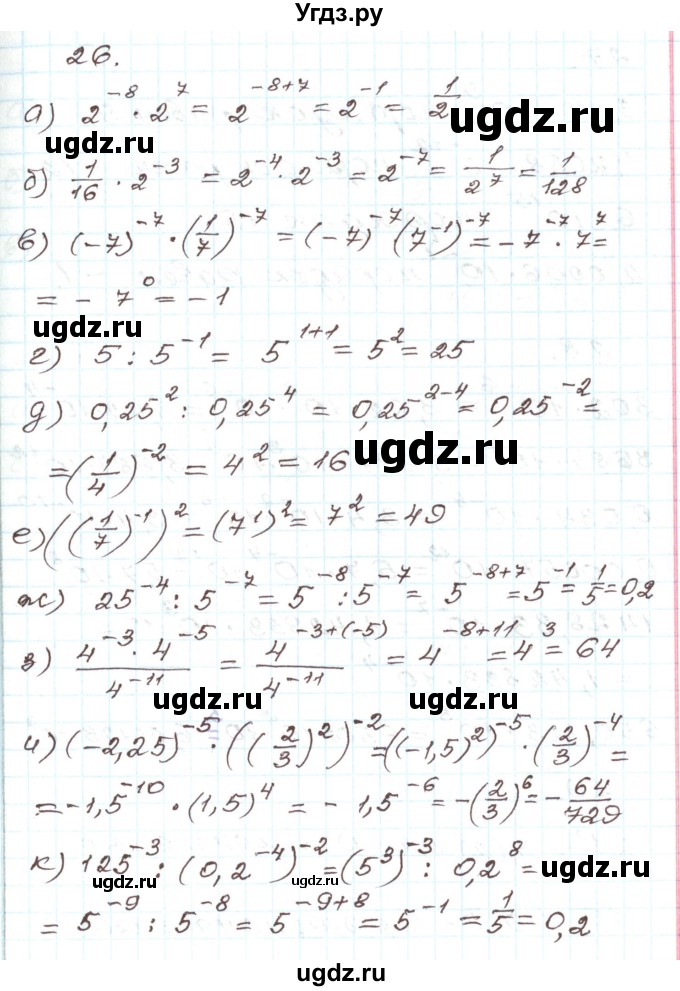 Угдз.ру
26.
а) 2⁻⁸ · 2⁷ = 2⁻⁸⁺⁷ = 2⁻¹ = 1/2
ugdz.ru
ugdz.ru
б) 1/16 · 2⁻³ = 2⁻⁴ · 2⁻³ = 2⁻⁷ = 1/2⁷ = 1/128
в) (-7)⁻⁷ · (1/7)⁻⁷ = (-7)⁻⁷ (7⁻¹)⁻⁷ = -7⁻⁷ · 7⁷ =
= -7⁰ = -1
ugdz.ru
г) 5 : 5⁻¹ = 5¹⁺¹ = 5² = 25
д) 0,25² : 0,25⁴ = 0,25²⁻⁴ = 0,25⁻² =
= (1/4)⁻² = 4² = 16
ugdz.ru
е) ((1/7)⁻¹)² = (7¹)² = 7² = 49
ж) 25⁻⁴ : 5⁻⁷ = 5⁻⁸ : 5⁻⁷ = 5⁻⁸⁺⁷ = 5⁻¹ = 1/5 = 0,2
з) 4⁻³ · 4⁻⁵ / 4⁻¹¹ = 4⁻³⁺⁽⁻⁵⁾ / 4⁻¹¹ = 4⁻⁸⁺¹¹ = 4³ = 64
ugdz.ru
ugdz.ru
и) (-2,25)⁻⁵ · ((2/3)²)⁻² = ((-1,5)²)⁻⁵ · (2/3)⁻⁴ =
= -1,5⁻¹⁰ · (1,5)⁴ = -1,5⁻⁶ = -(2/3)⁶ = -64/729
к) 125⁻³ : (0,2⁻⁴)⁻² = (5³)⁻³ : 0,2⁸ =
ugdz.ru
ugdz.ru
ugdz.ru
= 5⁻⁹ : 5⁻⁸ = 5⁻⁹⁺⁸ = 5⁻¹ = 1/5 = 0,2
ugdz.ru